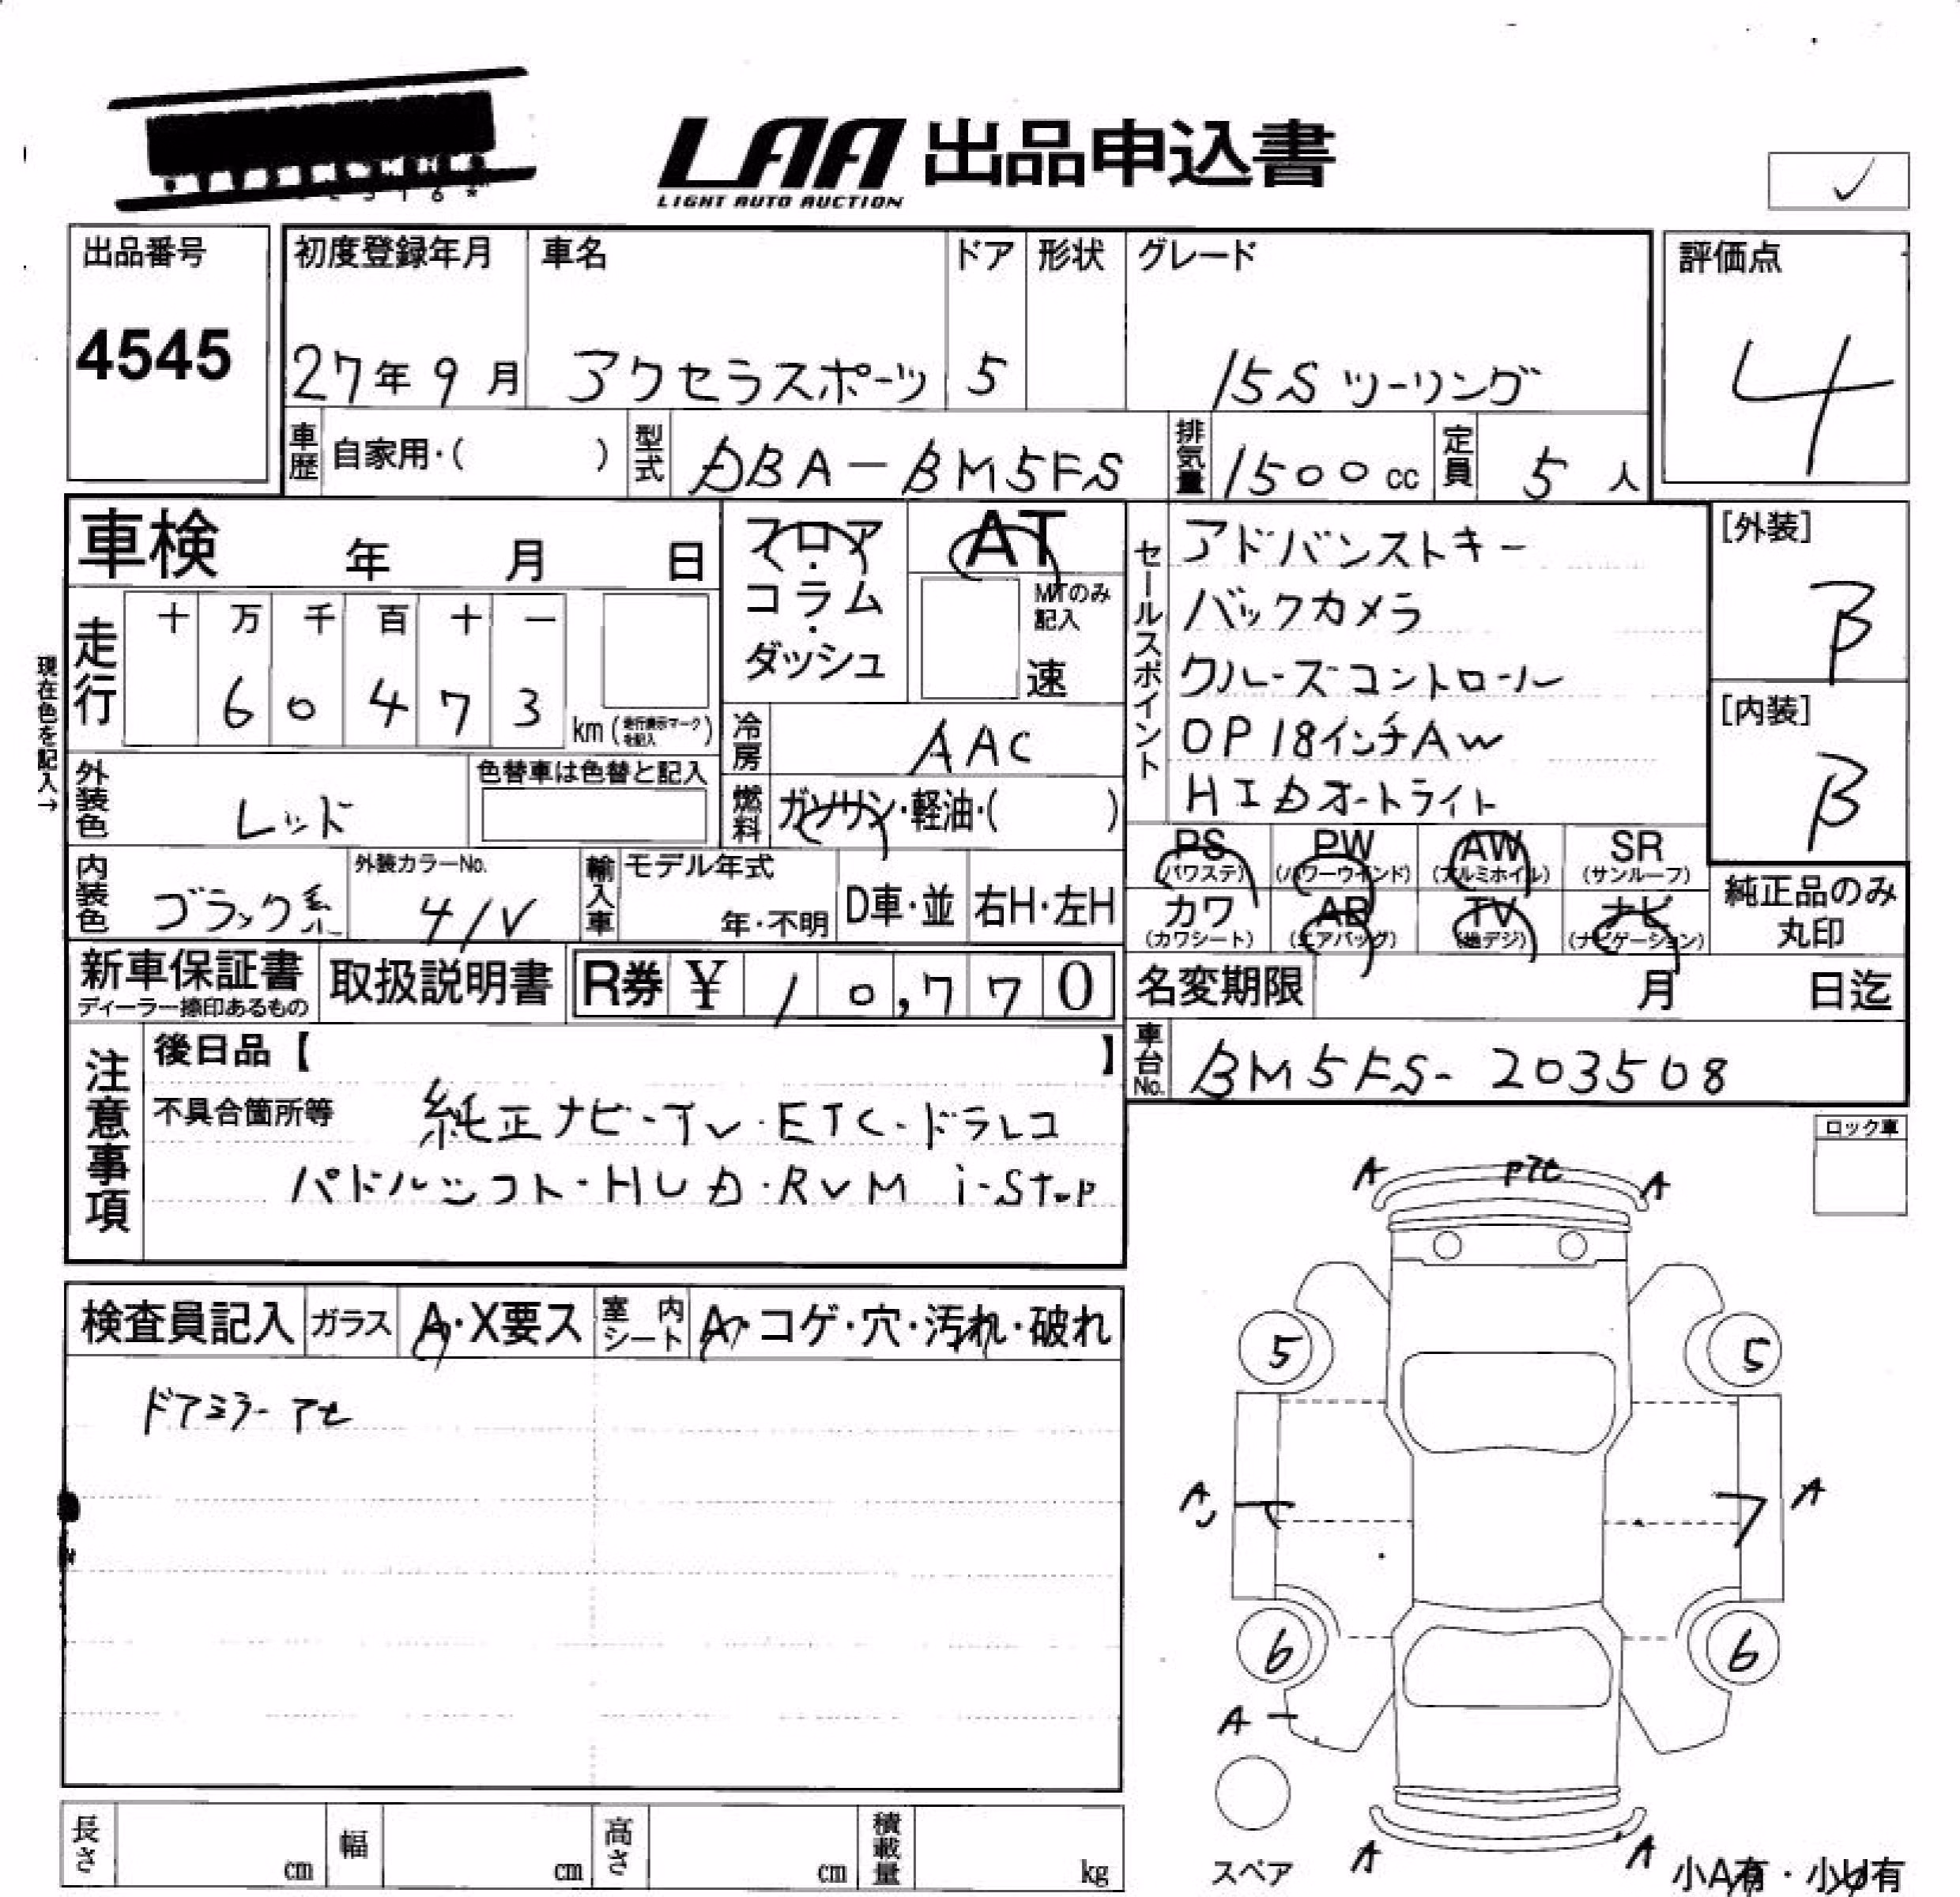 LAA 出品申込書
LIGHT AUTO AUCTION
✓
出品番号
4545
初度登録年月
27年9月
車名
アクセラスポーツ
ドア
5
形状
グレード
15S ツーリング
評価点
4
車歴 自家用・( )
型式 DBA-BM5FS
排気量 1500cc
定員 5人
車検 年 月 日
フロア・コラム・ダッシュ
AT
MTのみ記入
速
セールスポイント
アドバンストキー
バックカメラ
クルーズコントロール
OP18インチAW
HIDオートライト
[外装]
B
[内装]
B
現在色を記入→
走行
十 万 千 百 十 一
6 0 4 7 3
km (走行表示マークを記入)
冷房 AAC
外装色 レッド
色替車は色替と記入
燃料 ガソリン・軽油・( )
PS (パワステ) PW (パワーウインド) AW (アルミホイル) SR (サンルーフ)
カワ (カワシート) AB (エアバッグ) TV (地デジ) ナビ (ナビゲーション)
純正品のみ丸印
内装色 ブラック系
外装カラーNo.
41V
輸入車
モデル年式
年・不明
D車・並
右H・左H
新車保証書
ディーラー捺印あるもの
取扱説明書
R券 ¥ 10,770
名変期限 月 日迄
車台No. BM5FS-203508
注意事項
後日品【 】
不具合箇所等 純正ナビ・TV・ETC・ドラレコ
パドルシフト・HUD・RVM i-stop
ロック車
検査員記入 ガラス A・X要ス 室内シート A・コゲ・穴・汚れ・破れ
ドアミラーアセ
A Pアセ A
5 5
A A
6 6
A
スペア
A A
小A有・小U有
長さ cm 幅 cm 高さ cm 積載量 kg